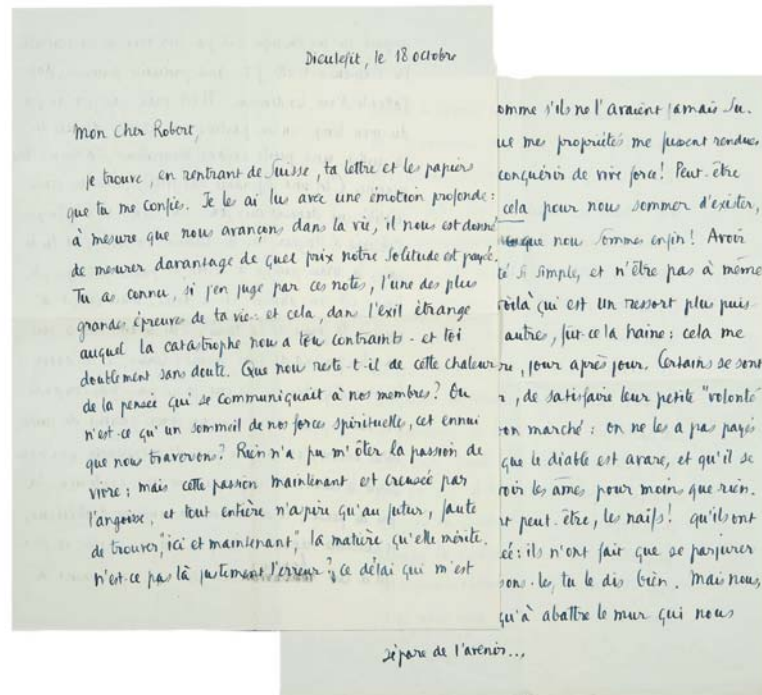 Dieulefit, le 18 octobre
Mon Cher Robert,
je trouve, en rentrant de Suisse, ta lettre et les papiers
que tu me confies. Je les ai lus avec une émotion profonde :
à mesure que nous avançons dans la vie, il nous est donné
de mesurer davantage de quel prix notre solitude est payée.
Tu as connu, si j'en juge par ces notes, l'une des plus
grandes épreuves de ta vie : et cela, dans l'exil étrange
auquel la catastrophe nous a tous contraints - et toi
doublement sans doute. Que nous reste-t-il de cette chaleur
de la pensée qui se communiquait à nos membres? Ou
n'est-ce qu'un sommeil de nos forces spirituelles, cet ennui
que nous traversons? Rien n'a pu m'ôter la passion de
vivre ; mais cette passion maintenant est creusée par
l'angoisse, et tout entière n'aspire qu'au futur, faute
de trouver, "ici et maintenant", la matière qu'elle mérite.
n'est-ce pas là justement l'erreur? Ce délai qui m'est
omme s'ils ne l'avaient jamais su.
ue mes propriétés me fussent rendues
conquérir de vive force! Peut-être
cela pour nous sommer d'exister,
que nous sommes enfin! Avoir
té si simple, et n'être pas à même
oilà qui est un ressort plus puis-
autre, fût-ce la haine : cela me
re, jour après jour. Certains se sont
r, de satisfaire leur petite "volonté
on marché : on ne les a pas payés
que le diable est avare, et qu'il se
voir les âmes pour moins que rien.
nt peut-être, les naïfs! qu'ils ont
cé : ils n'ont fait que se parjurer
sons-les, tu le dis bien. Mais nous,
qu'à abattre le mur qui nous
sépare de l'avenir...